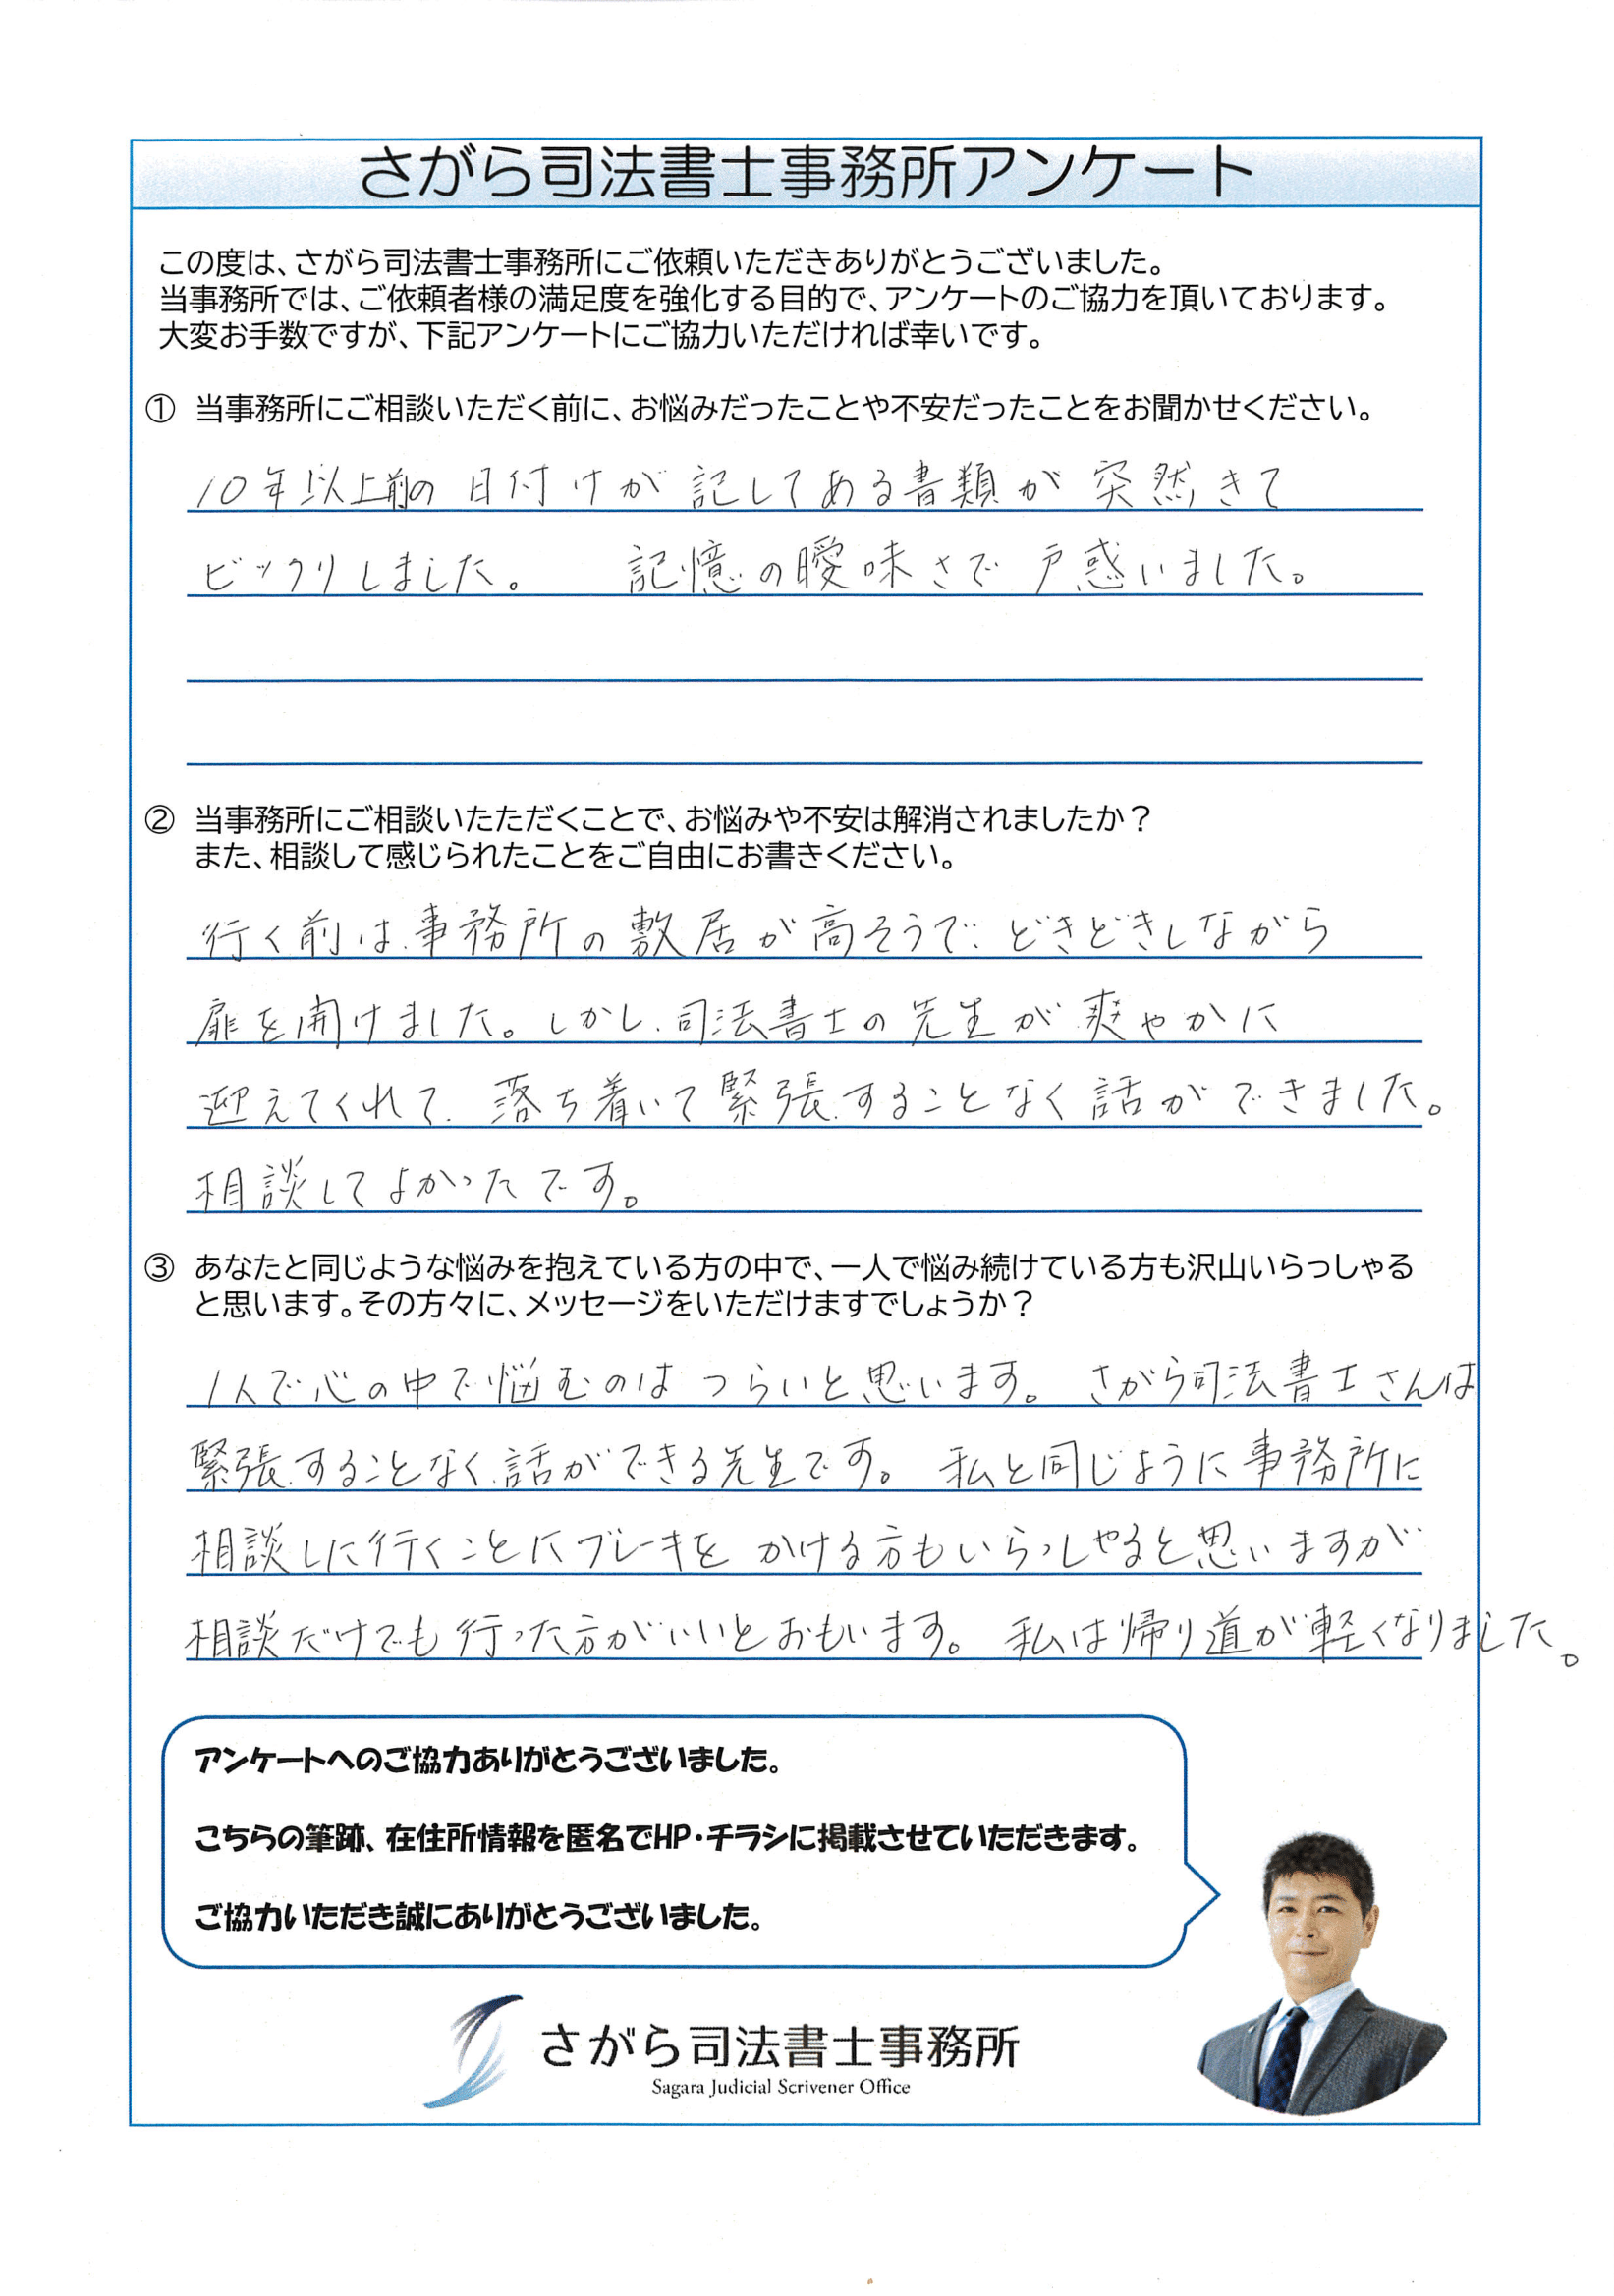 さがら司法書士事務所アンケート
この度は、さがら司法書士事務所にご依頼いただきありがとうございました。
当事務所では、ご依頼者様の満足度を強化する目的で、アンケートのご協力を頂いております。
大変お手数ですが、下記アンケートにご協力いただければ幸いです。
① 当事務所にご相談いただく前に、お悩みだったことや不安だったことをお聞かせください。
10年以上前の日付けが記してある書類が突然きて
ビックリしました。 記憶の曖味さで戸惑いました。
② 当事務所にご相談いたただくことで、お悩みや不安は解消されましたか？
また、相談して感じられたことをご自由にお書きください。
行く前は、事務所の敷居が高そうで、どきどきしながら
扉を開けました。しかし、司法書士の先生が爽やかに
迎えてくれて、落ち着いて緊張することなく話ができました。
相談してよかったです。
③ あなたと同じような悩みを抱えている方の中で、一人で悩み続けている方も沢山いらっしゃる
と思います。その方々に、メッセージをいただけますでしょうか？
1人で心の中で悩むのはつらいと思います。さがら司法書士さんは
緊張することなく、話ができる先生です。私と同じように事務所に
相談しに行くことにブレーキをかける方もいらっしゃると思いますが
相談だけでも行った方がいいとおもいます。私は帰り道が軽くなりました。
アンケートへのご協力ありがとうございました。
こちらの筆跡、在住所情報を匿名でHP・チラシに掲載させていただきます。
ご協力いただき誠にありがとうございました。
さがら司法書士事務所
Sagara Judicial Scrivener Office